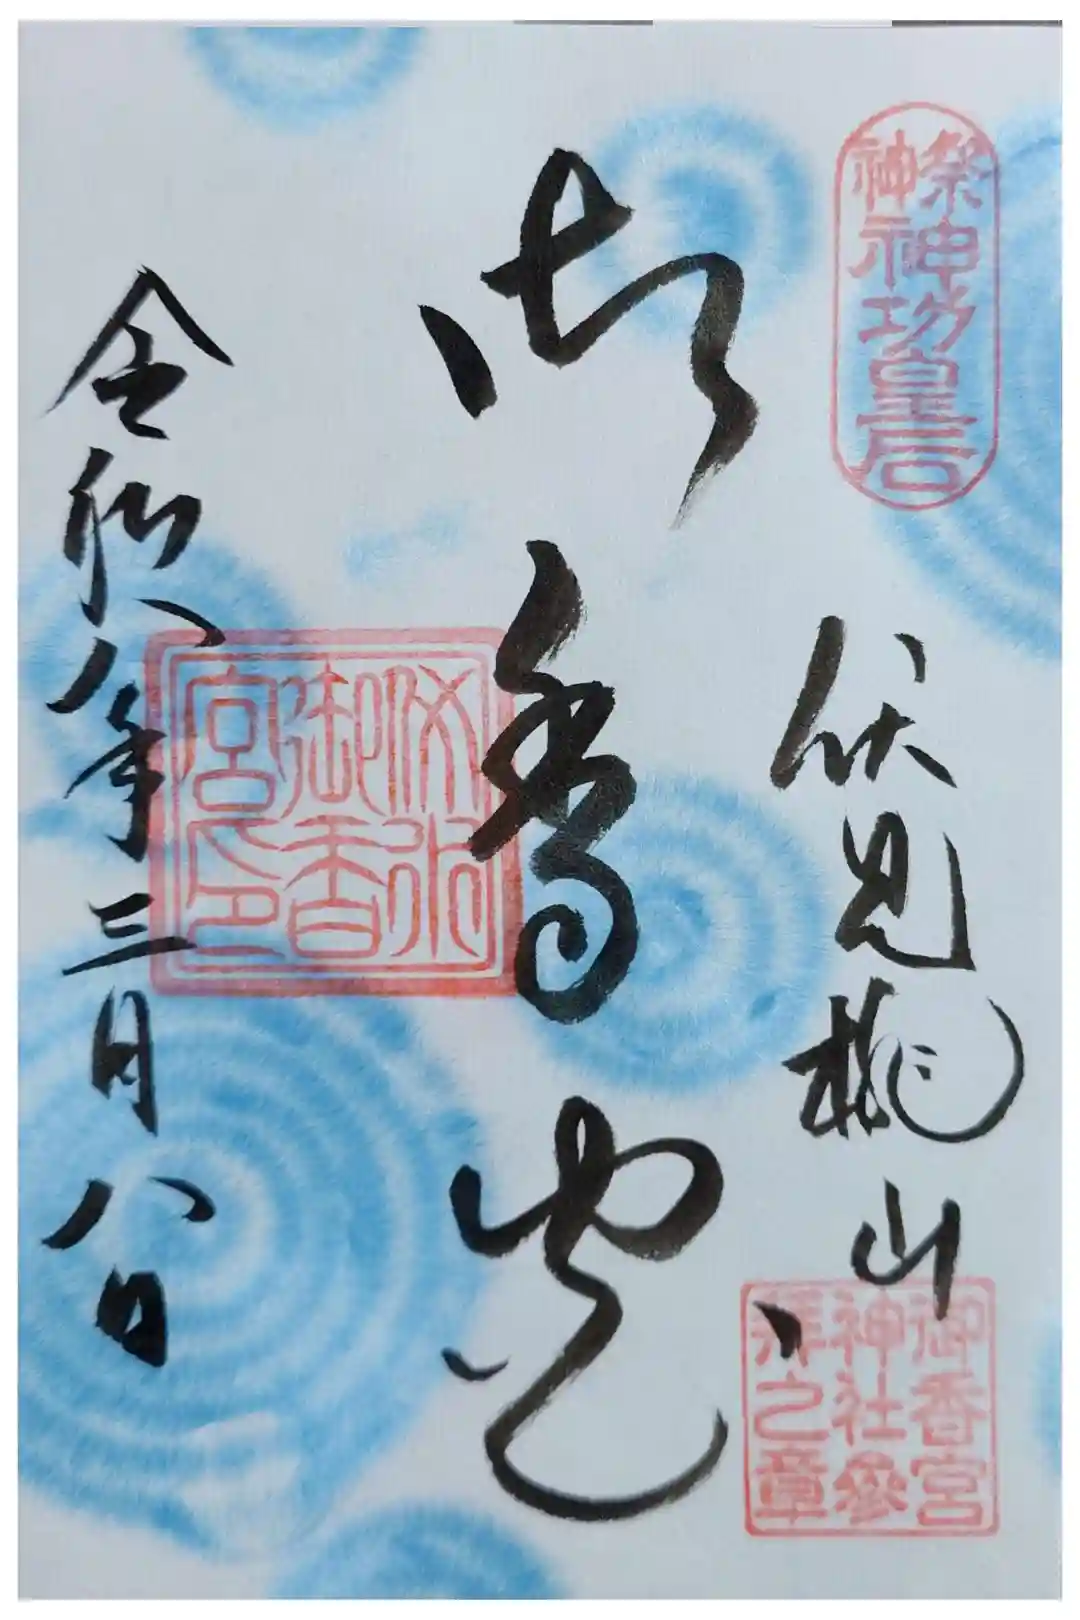 祭神
神功皇后
伏見桃山
御香宮
神社參
拝之章
御香宮
伏水
御香
宮印
令和八年三月八日